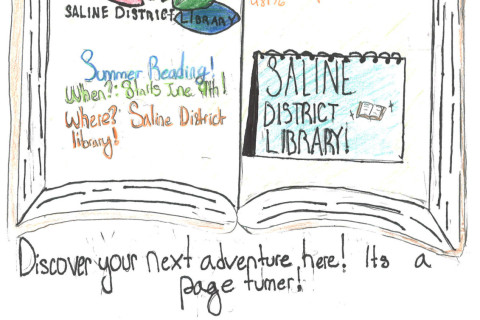 SALINE DISTRICT LIBRARY
Summer Reading!
When?: Starts June
Where? Saline District
library!
SALINE
DISTRICT
LIBRARY!
Discover your next adventure here! Its a
page turner!